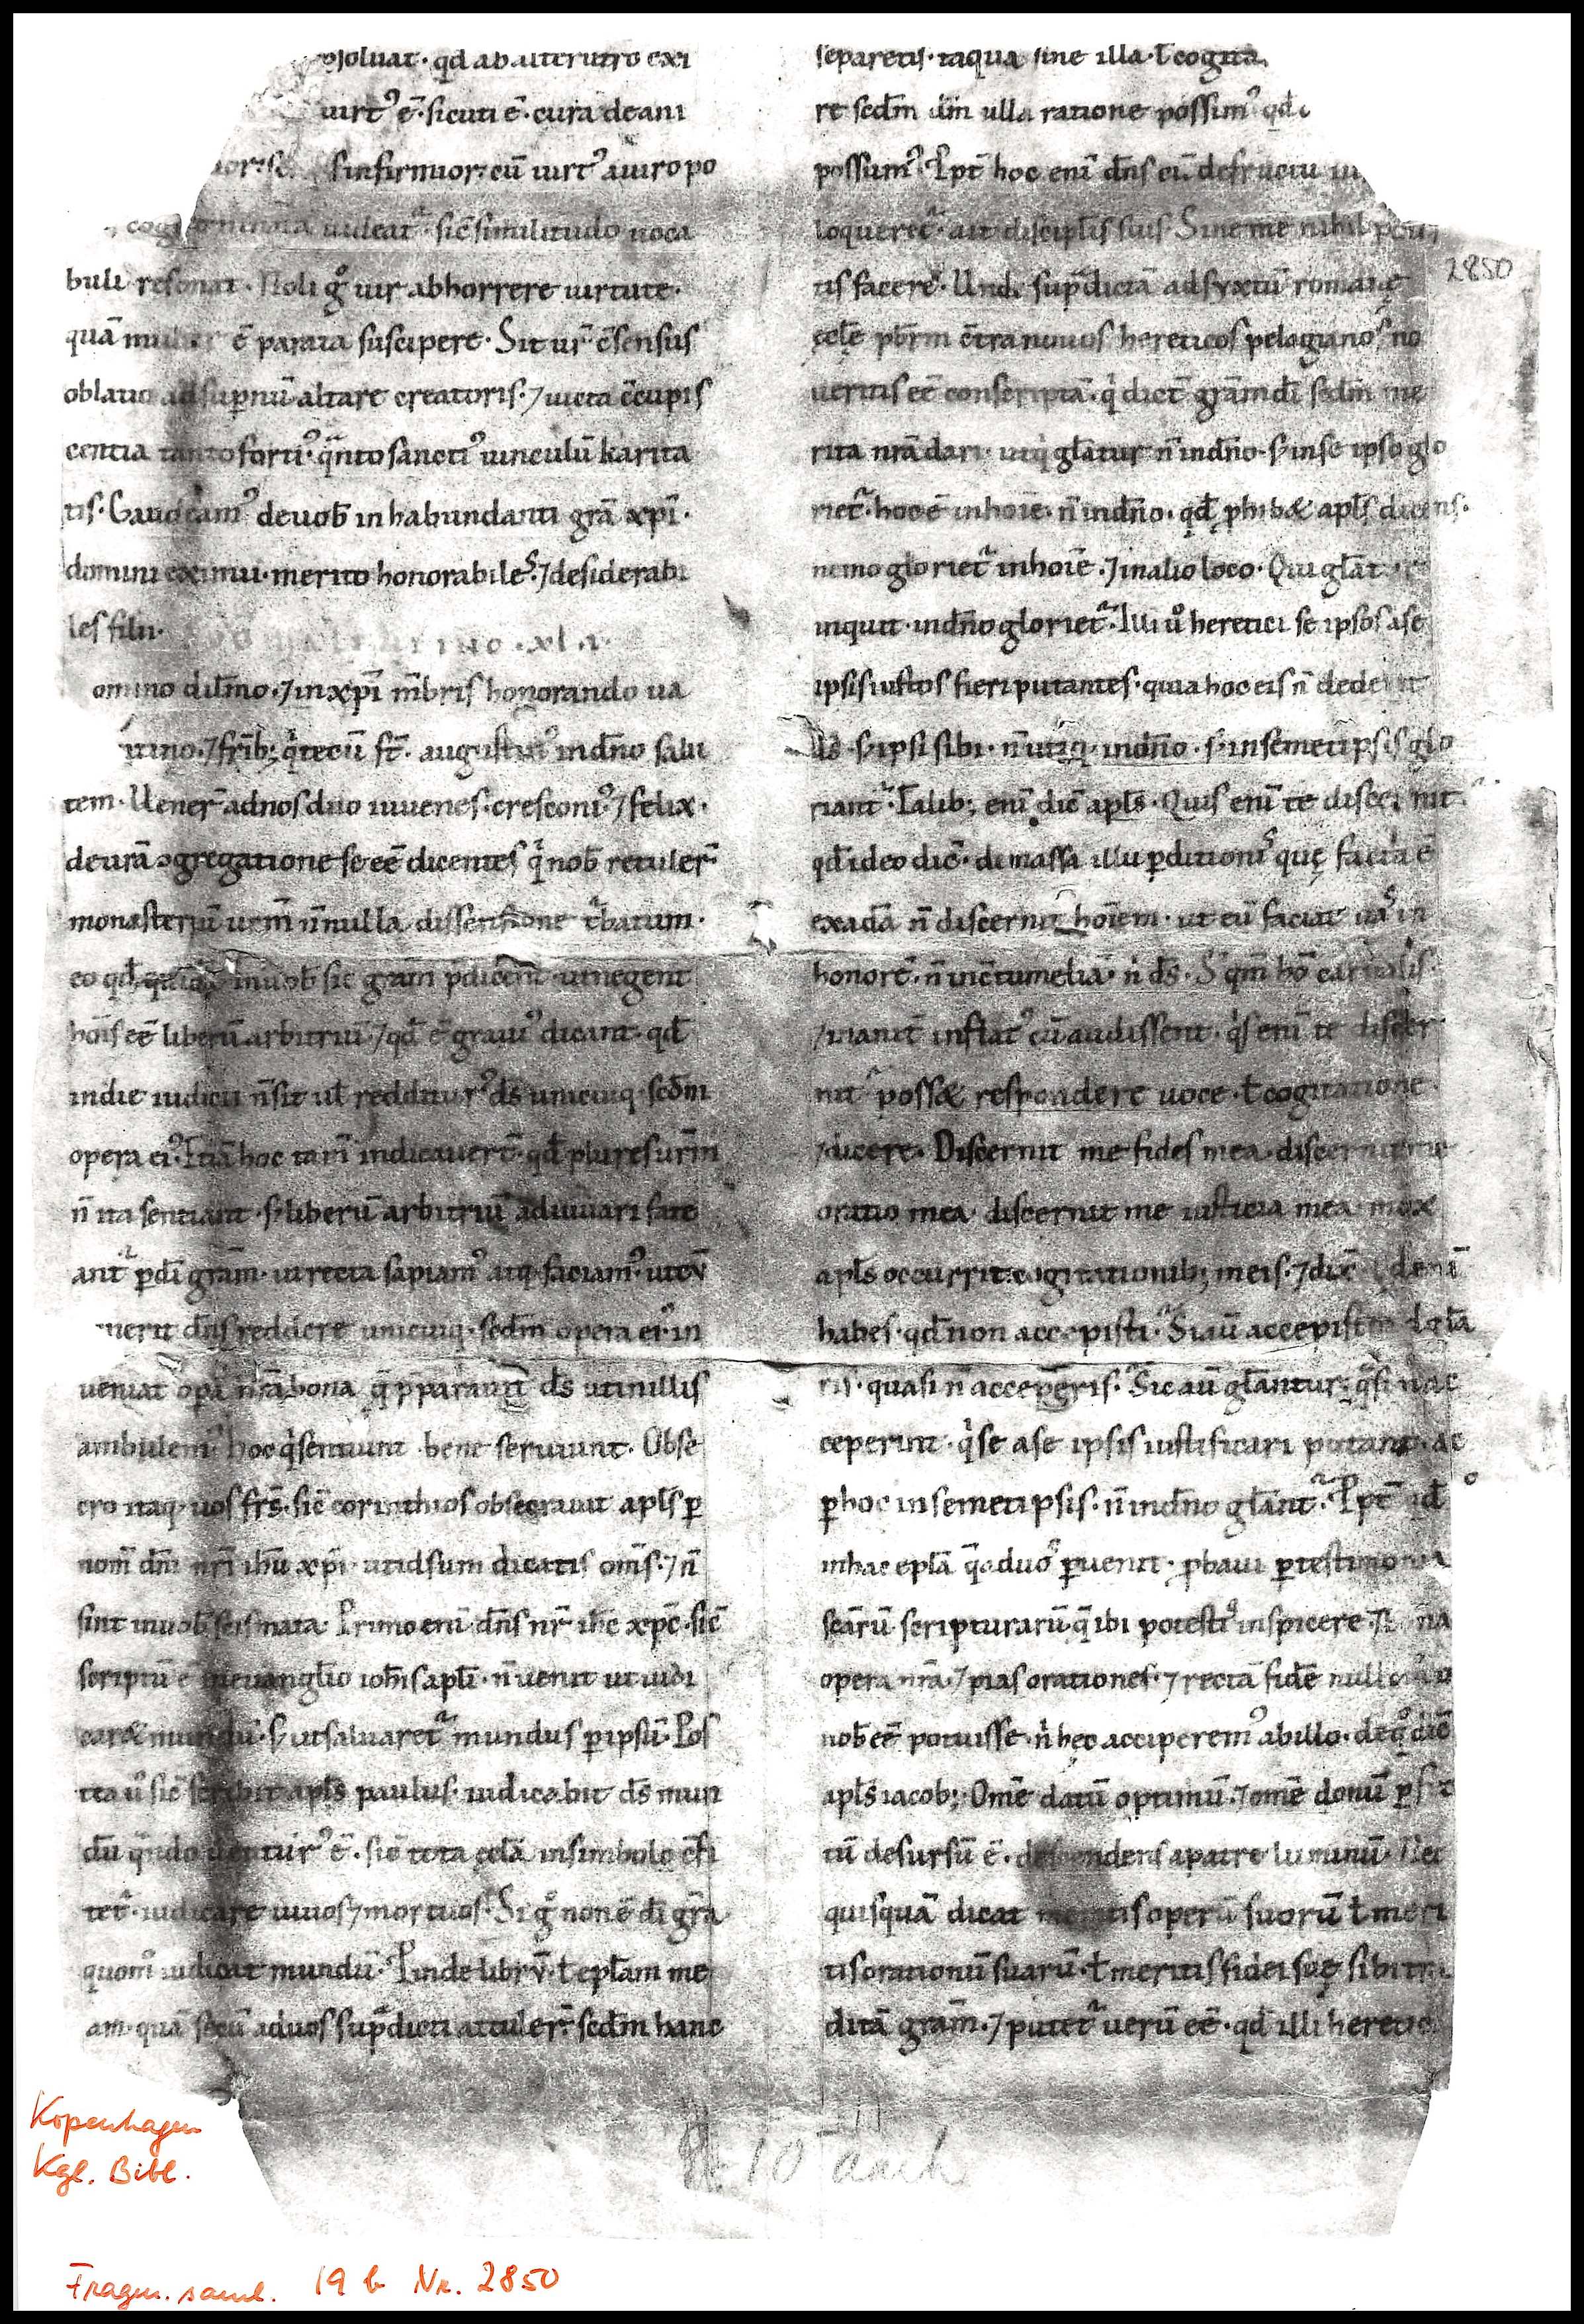 soluat · qd ab alterutro exi
uirt᷒ ē · sicuti ē · cura de ani
infirmior: cū uirt᷒ a uiro po
uideat᷑ · sic̄ similitudo uoca
buli resonat · Noli gͦ uir abhorrere uirtute ·
quā ē parata suscipere · Sit ur̄ c̄sensus
oblatio ad suꝑnū altare creatoris · ⁊ uicta c̄cupis
centia tanto forti᷒ · qͣnto sancti᷒ uinculū karita
tis · Gaudeam᷒ de uob̄ in habundanti gr̄a xp̄i ·
domini eximii · merito honorabiles · ⁊ desiderabi
les filii · xl
omino dil̄mo · ⁊ in xp̄i m̄bris honorando ua
tino · ⁊ fr̄ib; qͥ tecū st̄ · augustin᷒ in dn̄o salu
tem · Uener̄ ad nos duo iuuenes · cresconi᷒ ⁊ felix ·
de ur̄a ɔgregatione se eē dicentes qͥ nob̄ retuler̄
monasteriū ur̄m n̄nulla dissensione t᷑batum ·
eo qd̄ quidā in uob̄ sic gr̄am p̄dicent · ut negent
hoīs eē liberū arbitriū · ⁊ qd̄ ē graui᷒ dicant · qd̄
in die iudicii n̄ sit ul̄ redditur᷒ ds̄ unicuiq; · scd̄m
opera ei᷒ · Etiā hoc tam̄ indicauer̄t · qd̄ plures ur̄m
n̄ ita sentiant · s; liberū arbitriū adiuuari fate
ant᷑ ꝑ di̅ gr̄am · ut recta sapiam᷒ atq; faciam᷒ · ut cū
uenerit dn̄s reddere unicuiq; · scd̄m opera ei᷒ · in
ueniat opa nr̄a bona q̄ p̄parauit ds̄ ut in illis
ambulem᷒ · hoc qͥ sentiunt · bene sentiunt · Obse
cro itaq; uos fr̄s · sic̄ corinthios obsecrauit apl̄s ꝑ
nom̄ dn̄i nr̄i ih̄u xp̄i · ut idsum dicatis om̄s · ⁊ n̄
sint in uob̄ scismata · Primo eni dn̄s nr̄ ih̄c xp̄c · sic̄
scriptū ē in euanglio ioh̄is apl̄i · n̄ uenit ut iudi
car& mundū · s; ut saluaret᷑ mundus ꝑ ipsū · Pos
tea ū sic̄ scribit apl̄s paulus · iudicabit ds̄ mun
dū qͣndo uentur᷒ ē · sic̄ tota ęccl̄a in simbolo c̄fi
tet᷑ · iudicare uiuos ⁊ mortuos · Si gͦ non ē di̅ gr̄a
quom̄ iudicat mundū · Proinde librū · ł epl̄am me
am · quā secū ad uos sup̄dicti attuler̄ · scd̄m hanc
separetis · taqua sine illa · ł cogita
re scd̄m dm̄ ulla ratione possim᷒ qd̄
possum᷒ · Ppt̄ hoc eni dn̄s cū de fructu
loqueret᷑ · ait discipl̄is suis · Sine me nihil potes
tis facere · Unde sup̄dictā ad syxtū romanę
ęccl̄e pb̄rm c̄tra nouos hereticos pelagianos no
ueritis eē conscriptā · qͥ dic̄t gr̄am di̅ scd̄m me
rita nr̄a dari · ut qͥ gl̄atur n̄ in dn̄o · s; in se ipso glo
riet᷑ · hoc ē in hoīe · n̄ in dn̄o · qd̄ ꝓhib& apl̄s dicens ·
nemo gloriet᷑ in hoīe · ⁊ in alio loco · Qui gl̄at
inquit · in dn̄o gloriet᷑ · Illi ū heretici se ipsos a se
ipsis iustos fieri putantes · quia hoc eis n̄ dederit
ds̄ · s; ipsi sibi · n̄ utiq; in dn̄o · s; in semetipsis glo
riant᷑ · Talib; eni dic̄ apl̄s · Quis eni te discernit
qd̄ ideo dic̄ · de massa illi ꝑditionis quę facta ē
ex adā n̄ discernit hoīem · ut eū faciat uas in
honorē · n̄ in c̄tumeliā · n̄ ds̄ · S; qm̄ hō carnalis
⁊ inanit̄ inflat᷒ cū audissent · qͥs eni te discer
nit poss& respondere uoce · ł cogitatione
⁊ dicere · Discernit me fides mea · discernit me
oratio mea · discernit me iusticia mea · mox
apl̄s occurrit cogitationib; meis · ⁊ dic̄
habes · qd̄ non accepisti · Si aū accepisti gl̄a
ris · quasi n̄ acceperis · Sic aū gl̄antur · qͣsi n̄ ac
ceperint · qͥ se a se ipsis iustificari putant · ac
ꝑ hoc in semetipsis · n̄ in dn̄o gl̄ant᷑ · Ppt̄ qd̄
in hac epl̄a q̄ ad uos ꝑuenit · ꝓbaui ꝑ testimonia
scārū scripturarū q̄ ibi potestis inspicere
opera nr̄a · ⁊ pias orationes · ⁊ rectā fidē nullo
nob̄ eē potuisse · n̄ hęc acciperem᷒ ab illo · de qͦ dic̄
apl̄s iacob; Omē datū optimū · ⁊ omē donū ꝑfec
tū desursū ē · descendens a patre luminū · Nec
quisquā dicat meritis operū suorū ł meri
tis orationū suarū · ł meritis fidei suę sibi tra
ditā gr̄am · ⁊ putet᷑ uerū eē · qd̄ illi heretic
2850
10
Kopenhagen
Kgl. Bibl.
Fragm. saml. 19 b Nr. 2850